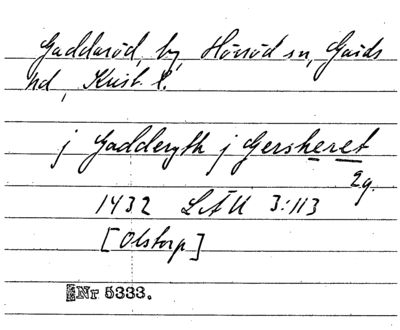 Gaddaröd, by, Hörröd sn, Gärds
hd, Krist. l.
j Gadderyth j Gersheret
2g.
1432 LÄU 3:113
[Olstorp]
Nr 5333.